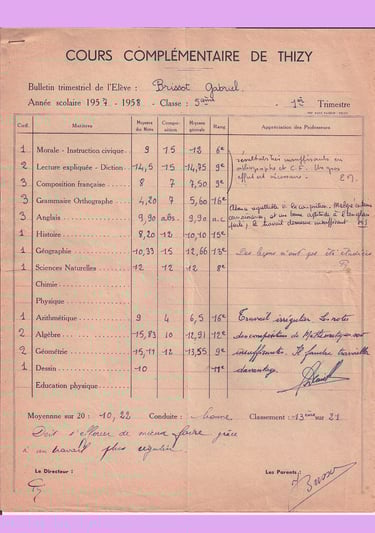 COURS COMPLÉMENTAIRE DE THIZY
Bulletin trimestriel de l'Elève : Brissot Gabriel.
Année scolaire 1957 - 1958 - Classe : 5ème - 1er Trimestre
Coef. Matières Moyenne des Notes Compo-sition Moyenne générale Rang Appréciation des Professeurs
1 Morale - Instruction civique 9 15 6e
2 Lecture expliquée - Diction 14,5 15 14,75 9e
3 Composition française 8 7 7,50 9e
3 Grammaire Orthographe 4,20 7 5,60 16e
3 Anglais 9,90 abs. 9,90 a.c
1 Histoire 8,20 12 10,10 15e
1 Géographie 10,33 15 12,66 13e
1 Sciences Naturelles 12 12 12 8e
Chimie
Physique
1 Arithmétique 9 4 6,5 16e
2 Algèbre 15,83 10 12,91 12e
2 Géométrie 15,11 12 13,55 9e
1 Dessin 10 11e
Education physique
résultats insuffisants en
orthographe et C.F. Un gros
effort est nécessaire.
le travail demeure insuffisant
Des leçons n'ont pas été étudiées
Travail irrégulier. Les notes
des compositions de Mathématiques sont
insuffisantes. Il faudra travailler
davantage.
Moyenne sur 20 : 10,22 Conduite : bonne Classement : 13ème sur 21
Doit s'efforcer de mieux faire grâce
à un travail plus régulier
Le Directeur : Les Parents :